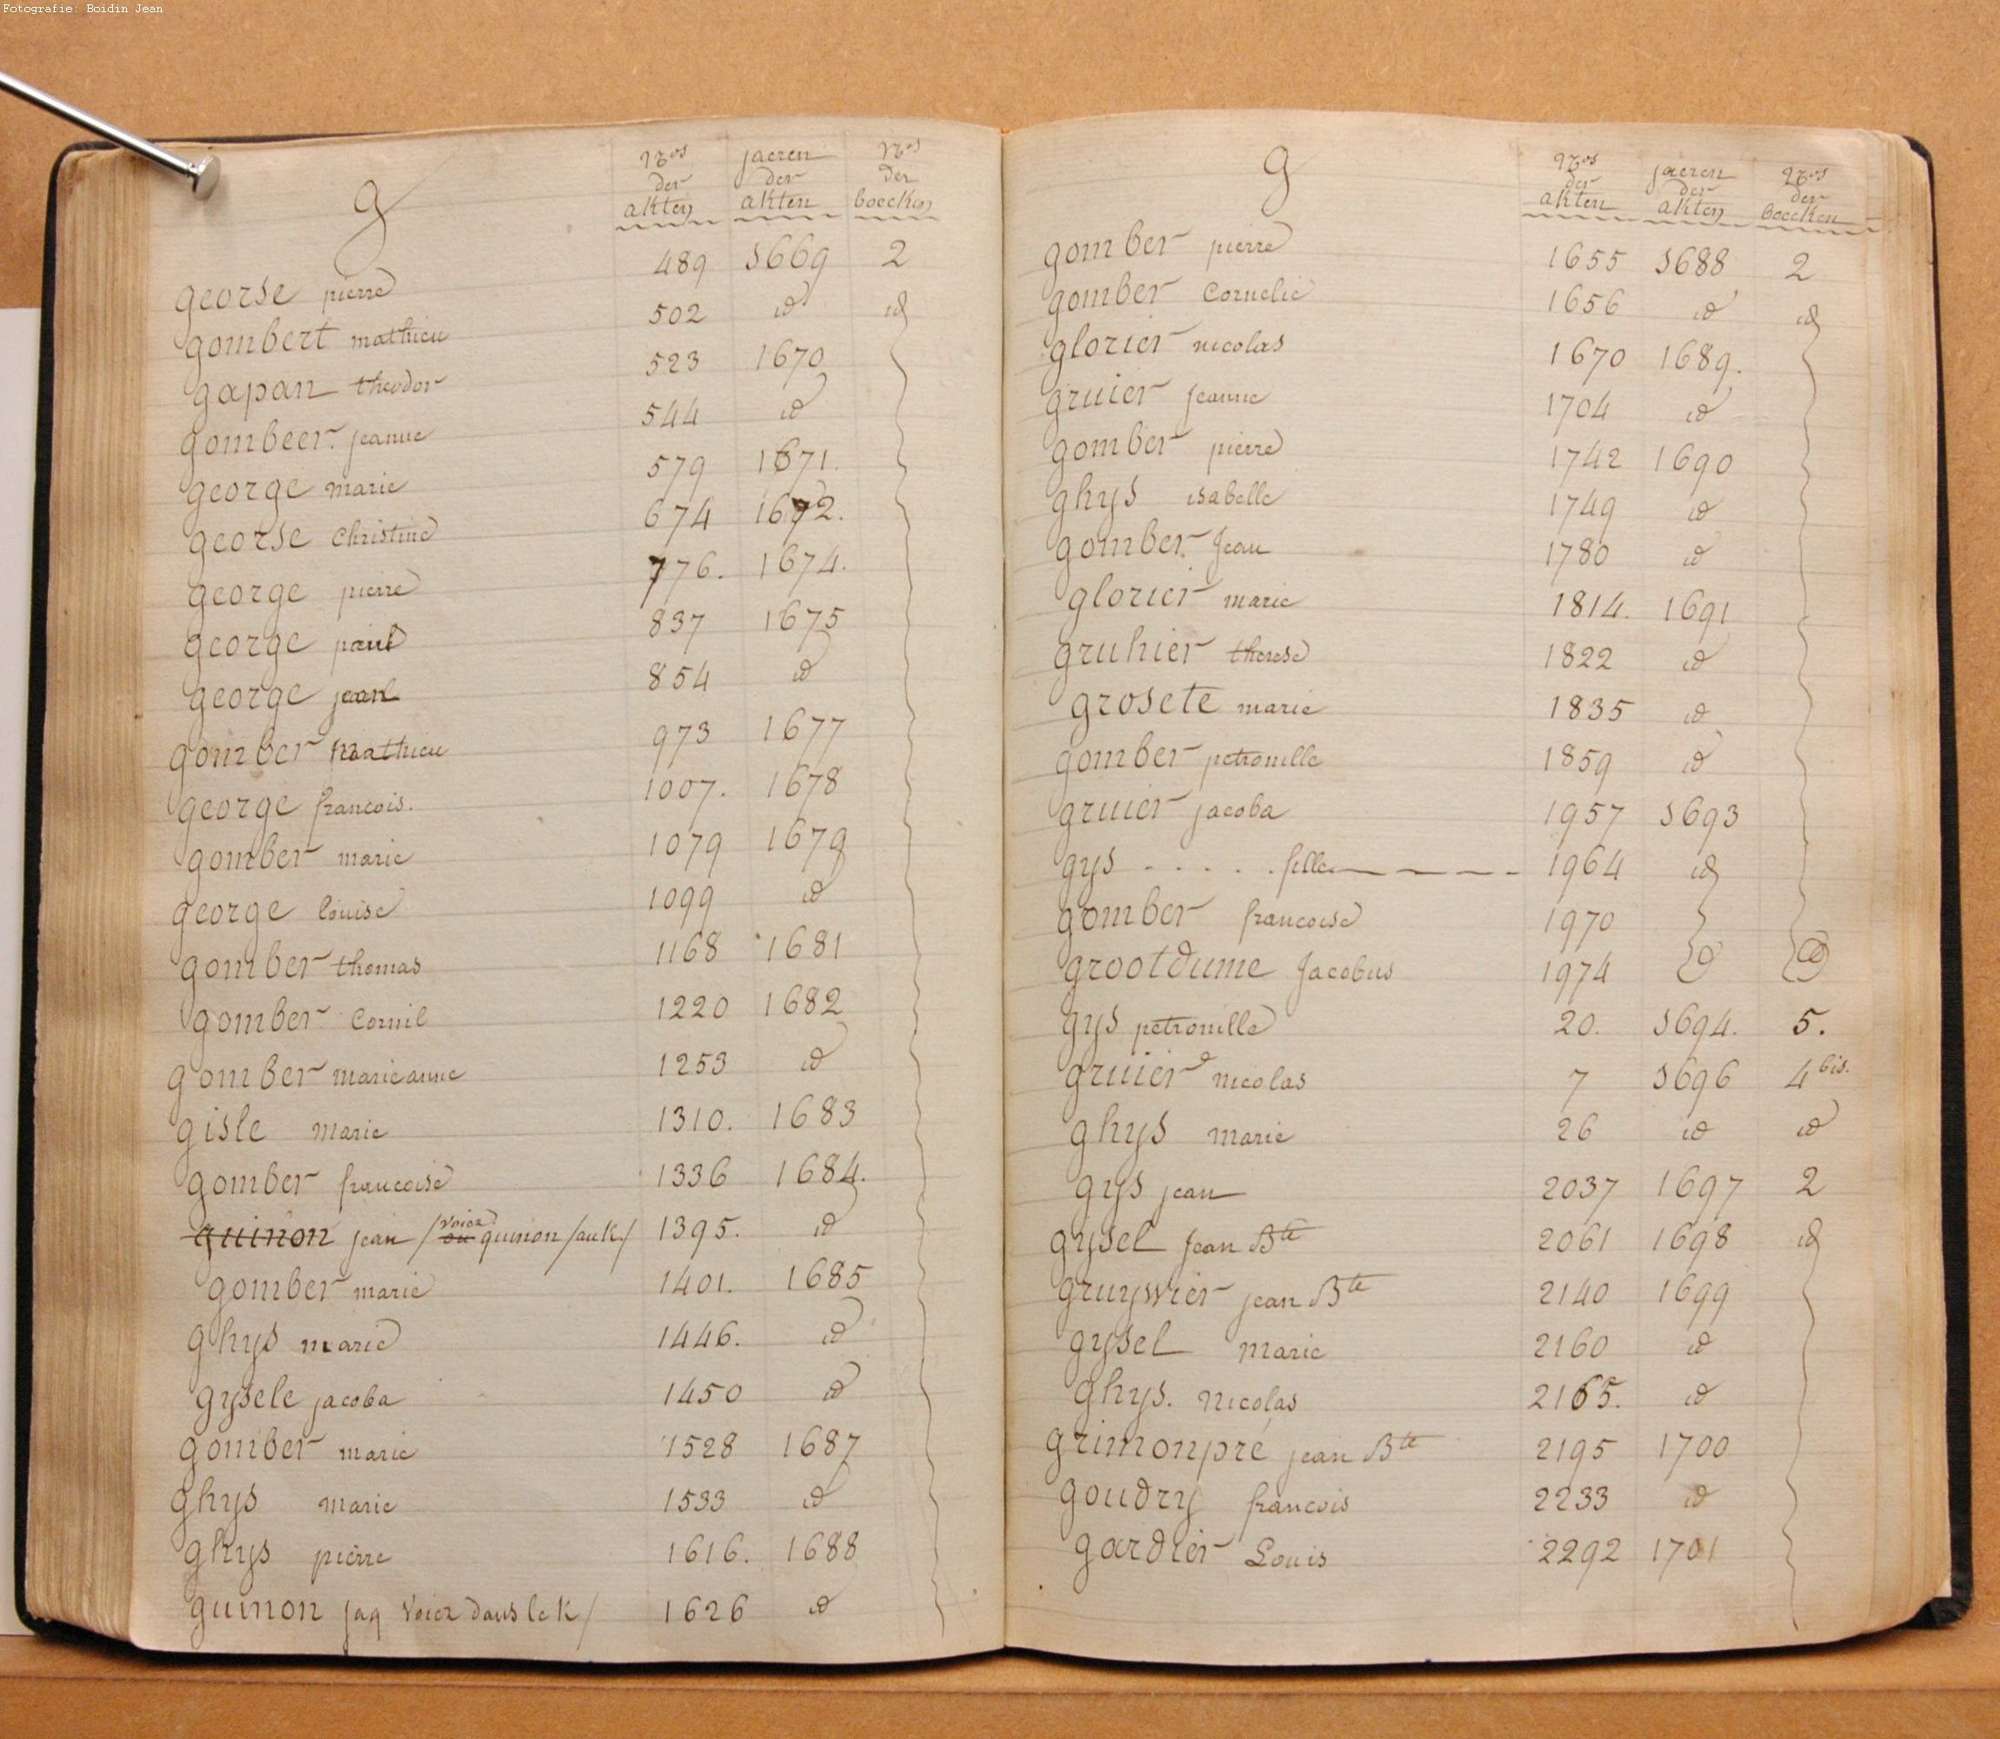 Fotografie: Boidin Jean
g
Nos der akten
jaeren der akten
Nos der boecken
georse pierre 489 1669 2
gombert mathieu 502 id id
gapan theodor 523 1670
gombeer jeanne 544 id
george marie 579 1671.
georse Christine 674 1672.
george pierre 776. 1674.
george paul 837 1675
george jean 854 id
gomber mathieu 973 1677
george francois. 1007. 1678
gomber marie 1079 1679
george louise 1099 id
gomber thomas 1168 1681
gomber Cornil 1220 1682
gomber marieanne 1253 id
gisle marie 1310. 1683
gomber francoise 1336 1684.
guinon jean / ou voiez quinon /au k/ 1395. id
gomber marie 1401. 1685
ghys marie 1446. id
gysele jacoba 1450 id
gomber marie 1528 1687
ghys marie 1533 id
ghys pierre 1616. 1688
guinon jaq voiez dans le k/ 1626 id
g
Nos der akten
jaeren der akten
Nos der boecken
gomber pierre 1655 1688 2
gomber Cornelie 1656 id id
glorier nicolas 1670 1689.
gruier jeanne 1704 id
gomber pierre 1742 1690
ghys isabelle 1749 id
gomber. Jean 1780 id
glorier marie 1814. 1691
gruhier therese 1822 id
grosete marie 1835 id
gomber petronille 1859 id
gruier jacoba 1957 1693
gys . . . . . fille 1964 id
gomber francoise 1970
grootdume Jacobus 1974 id id
gys petronille 20. 1694. 5.
gruier nicolas 7 1696 4 bis.
ghys marie 26 id id
gys jean 2037 1697 2
gysel Jean Bte 2061 1698 id
gruywier jean Bte 2140 1699
gysel marie 2160 id
ghys. Nicolas 2165. id
grimonpré jean Bte 2195 1700
goudry francois 2233 id
gardier Louis 2292 1701